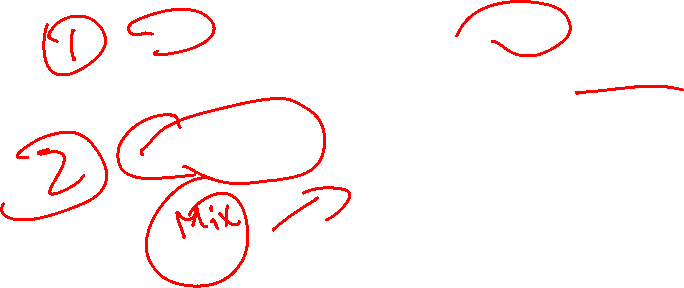 1
2
Mix